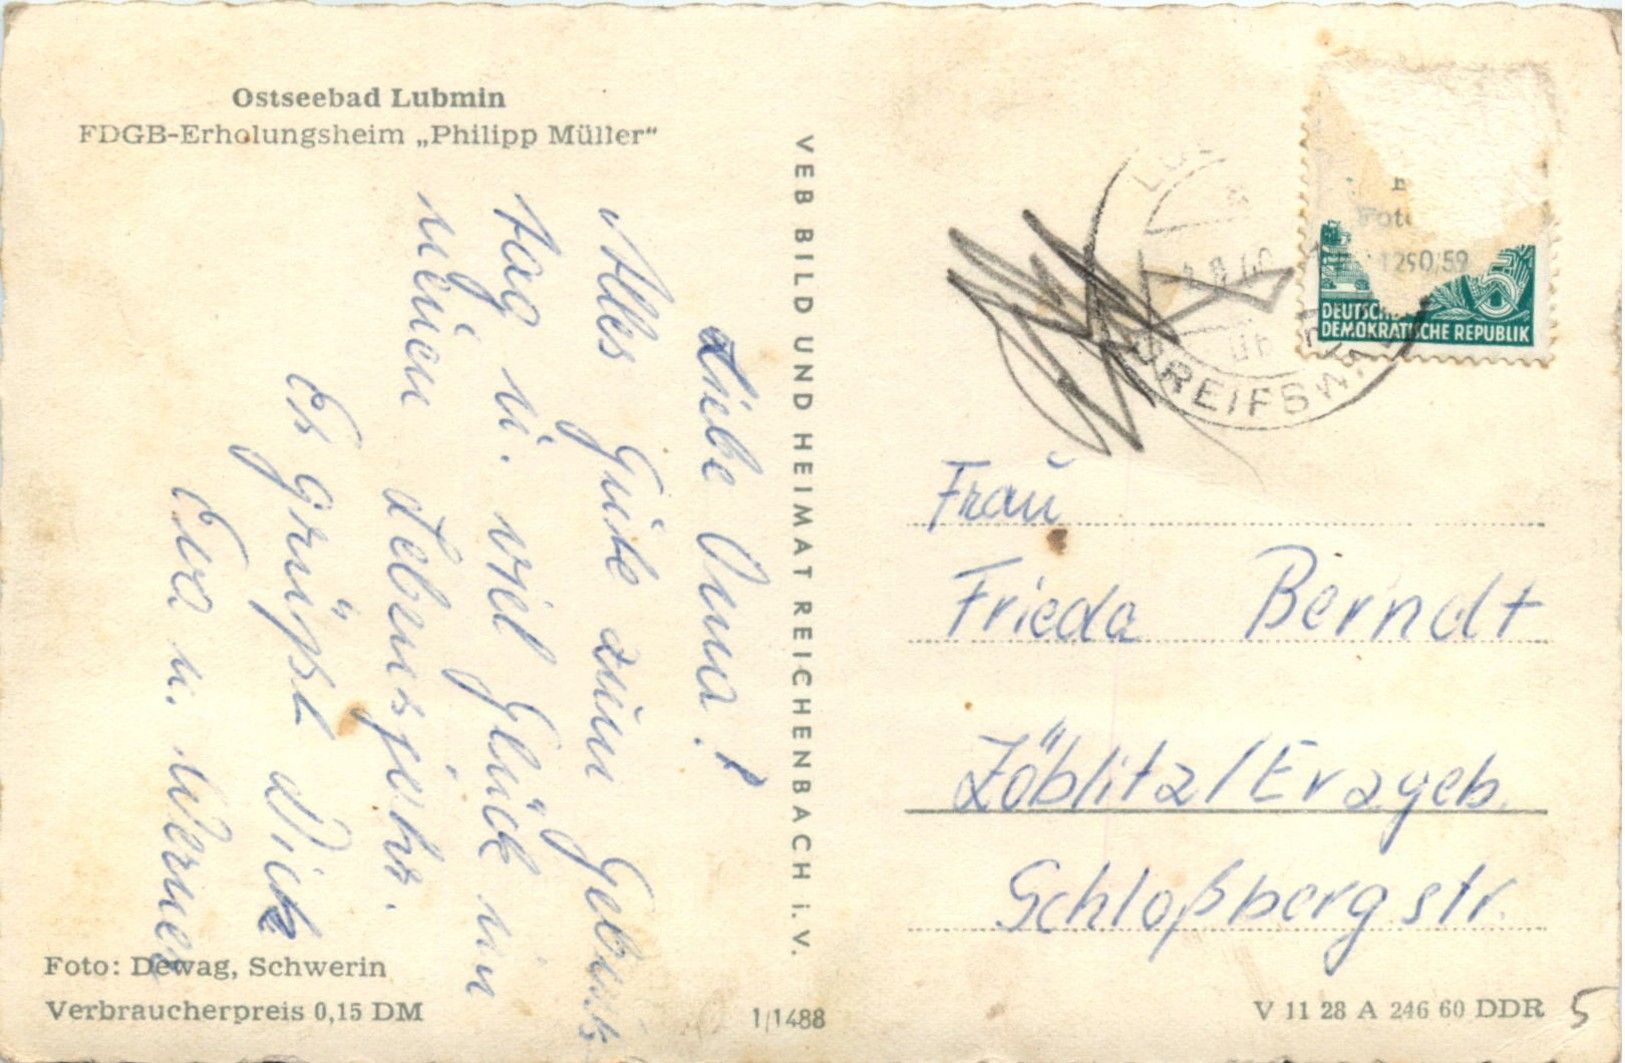 Ostseebad Lubmin
FDGB-Erholungsheim „Philipp Müller“
Liebe Oma!
Alles Gute zum Geburts
tag u. viel Glück im
neuen Lebensjahr.
Es grüßt Dich
Eva u. Werner
Foto: Dewag, Schwerin
Verbraucherpreis 0,15 DM
VEB BILD UND HEIMAT REICHENBACH i. V.
1/1488
GREIFSWALD
Foto
1250/59
DEUTSCHE
DEMOKRATISCHE REPUBLIK
Frau
Frieda Berndt
Zöblitz/Erzgeb.
Schloßbergstr.
V 11 28 A 246 60 DDR
5